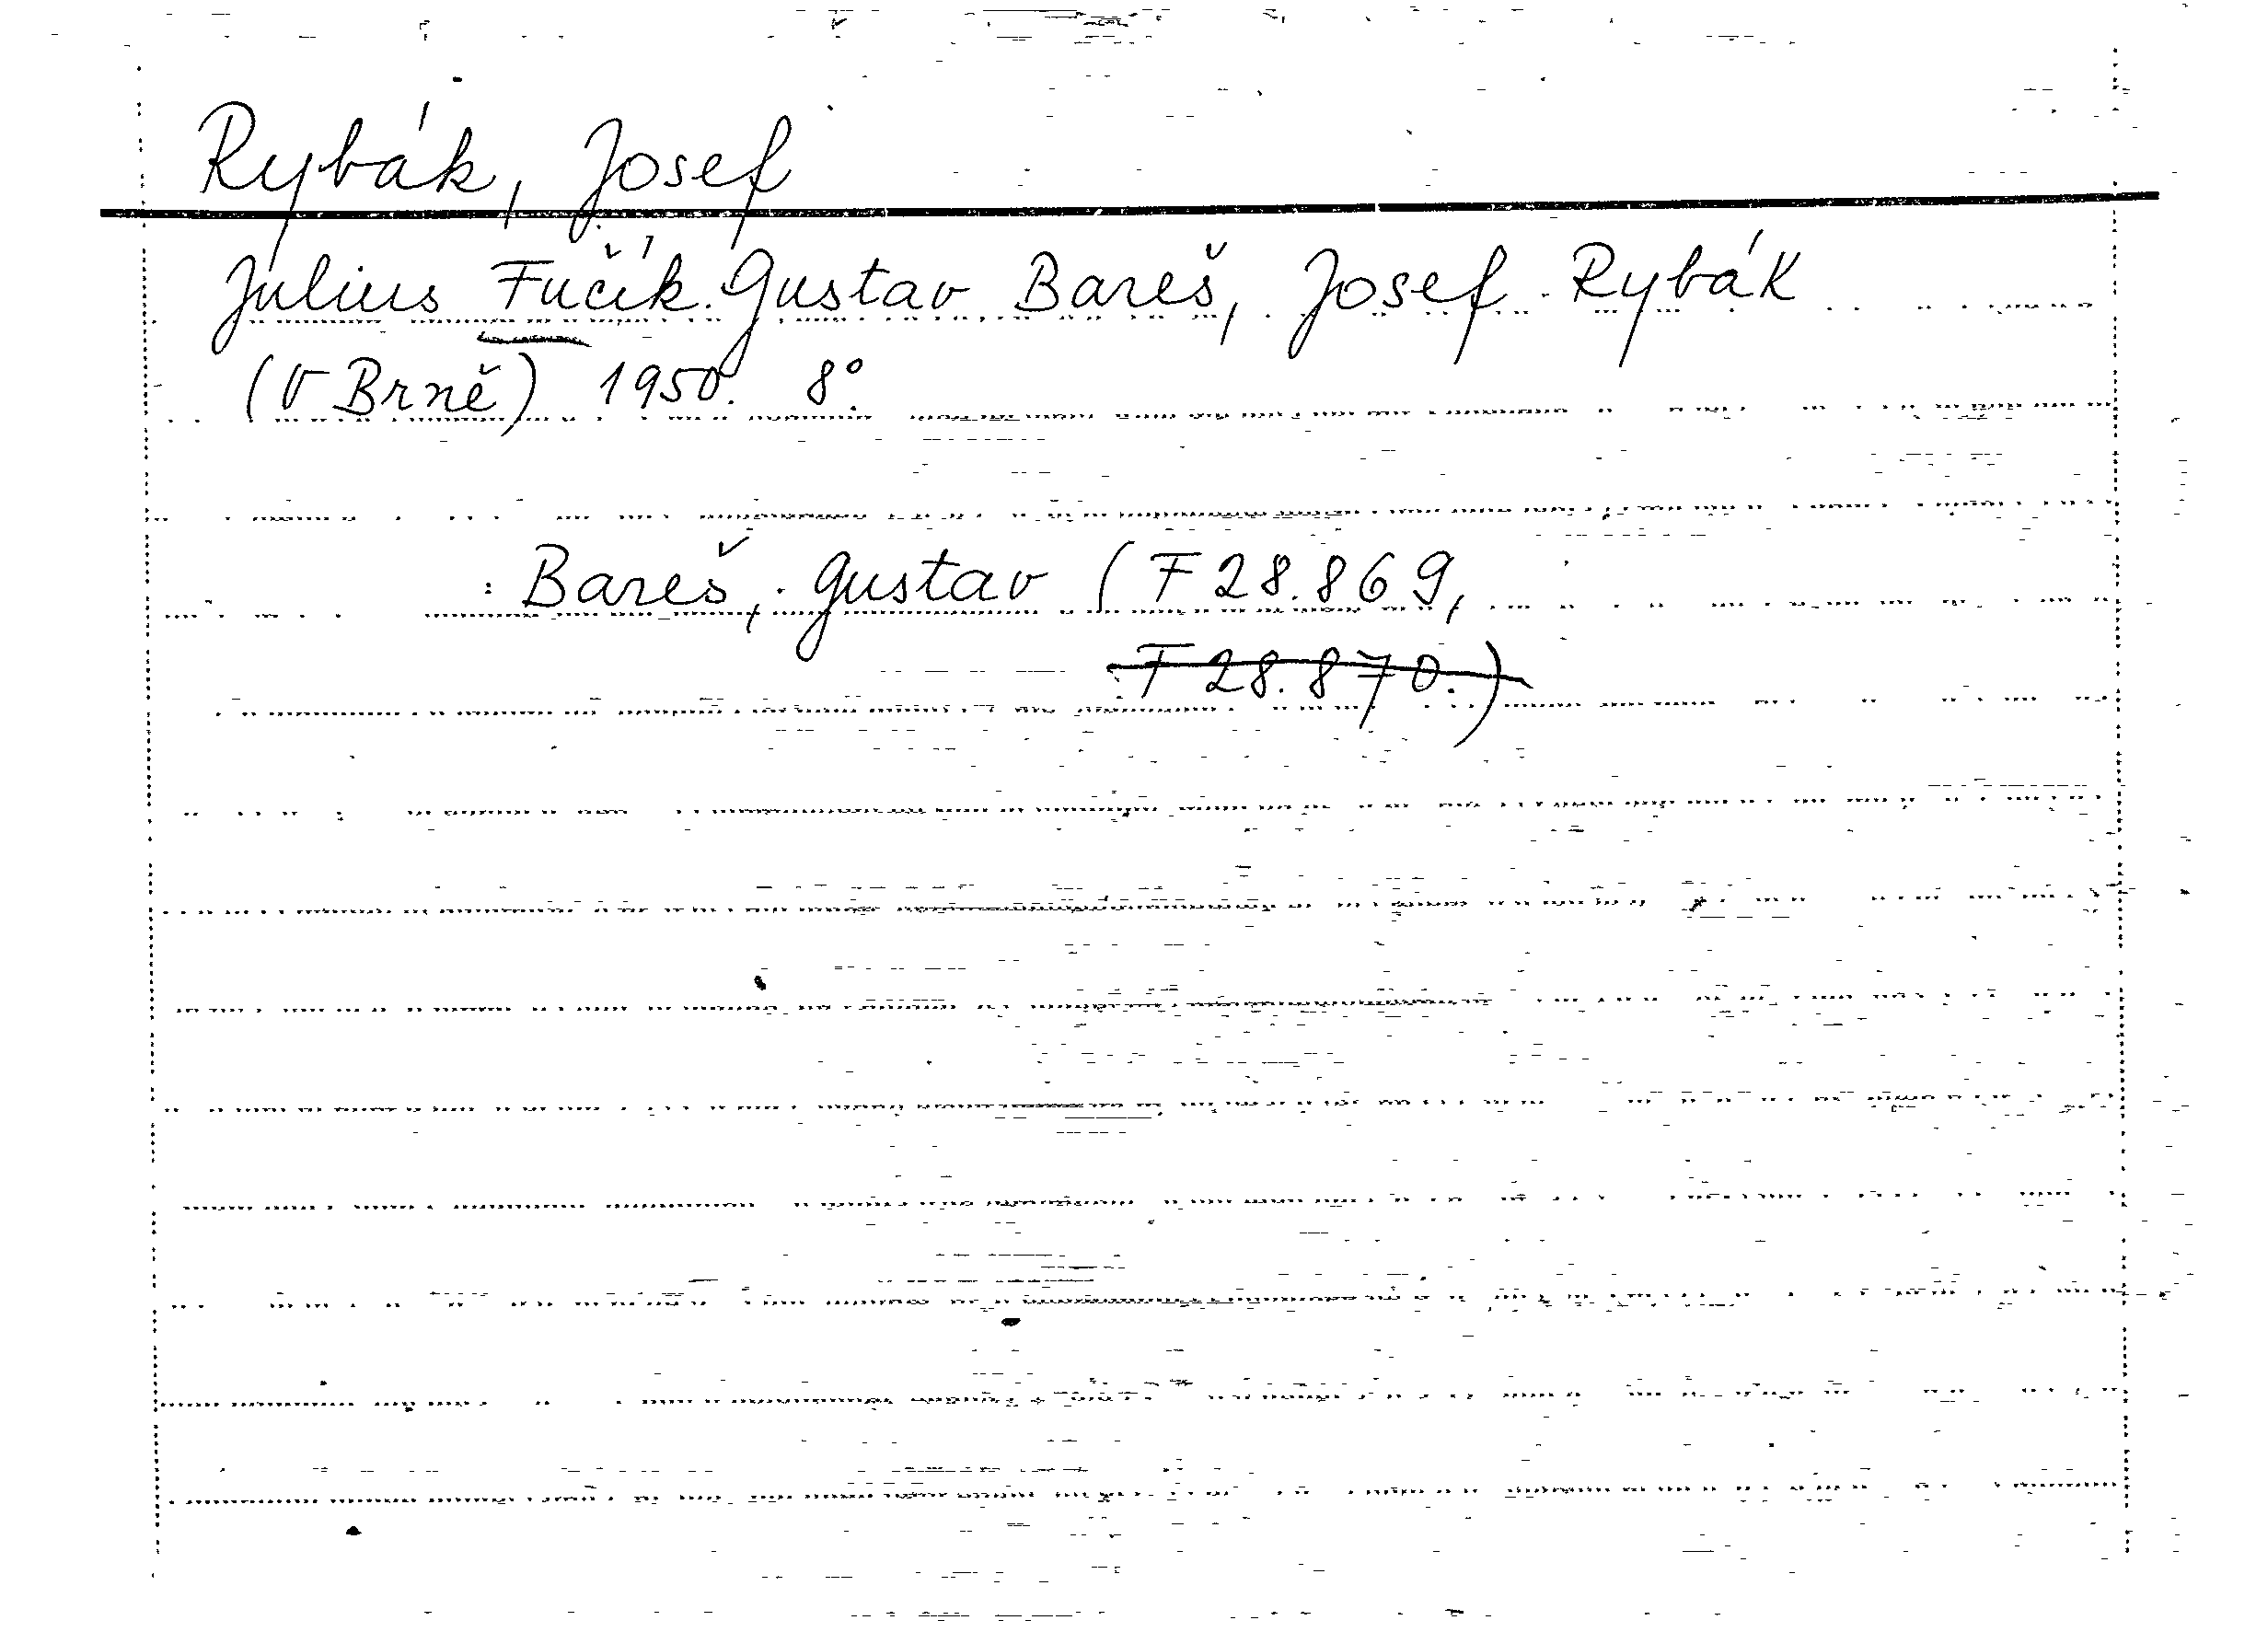 Rybák, Josef
Julius Fučík. Gustav Bareš, Josef Rybák
(V Brně) 1950. 8°.
: Bareš, Gustav (F 28.869,
F 28.870.)